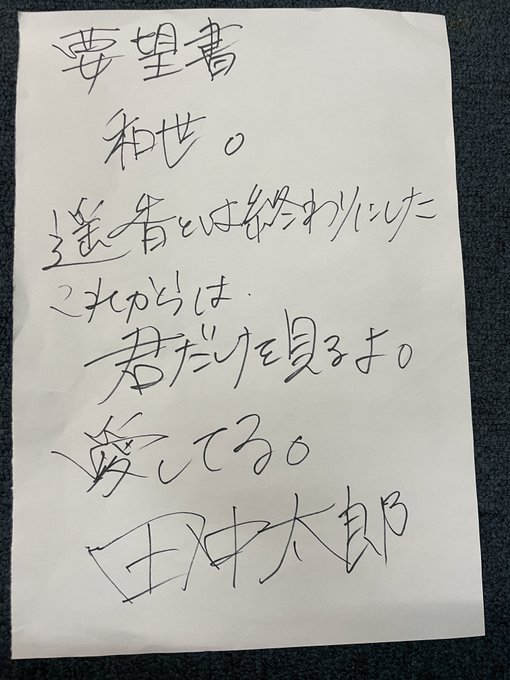 要望書
和世。
遥香とは終わりにした
これからは
君だけを見るよ。
愛してる。
田中太郎